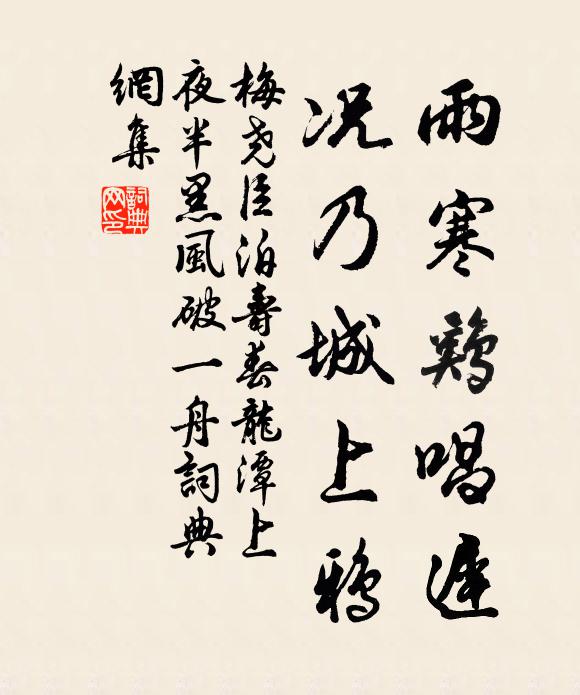 雨寒鷄唱遲
况乃城上鴉
梅尧臣泊壽春龍潭上
夜半黑風破一舟詞典
網集
詞典
网印